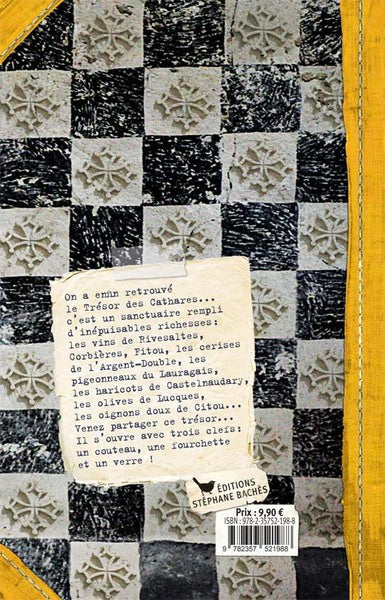 On a enfin retrouvé
le Trésor des Cathares...
c'est un sanctuaire rempli
d'inépuisables richesses:
les vins de Rivesaltes,
Corbières, Fitou, les cerises
de l'Argent-Double, les
pigeonneaux du Lauragais,
les haricots de Castelnaudary,
les olives de Lucques,
les oignons doux de Citou...
Venez partager ce trésor...
Il s'ouvre avec trois clefs:
un couteau, une fourchette
et un verre !
ÉDITIONS
STÉPHANE BACHÈS
Prix : 9,90 €
ISBN : 978-2-35752-198-8
9 782357 521988